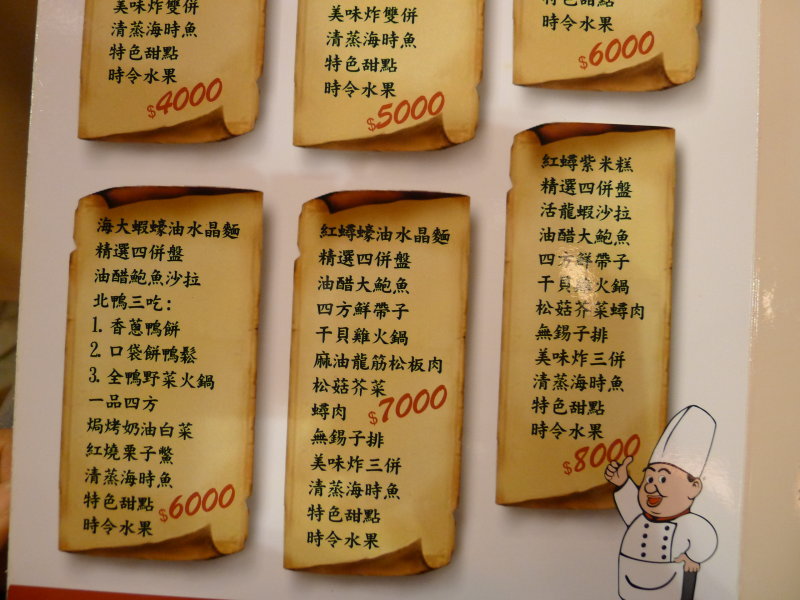 美味炸雙併
清蒸海時魚
特色甜點
時令水果
$4000
美味炸雙併
清蒸海時魚
特色甜點
時令水果
$5000
時令水果
$6000
海大蝦蠔油水晶麵
精選四併盤
油醋鮑魚沙拉
北鴨三吃:
1. 香蔥鴨餅
2. 口袋餅鴨鬆
3. 全鴨野菜火鍋
一品四方
焗烤奶油白菜
紅燒栗子鱉
清蒸海時魚
特色甜點
時令水果
$6000
紅蟳蠔油水晶麵
精選四併盤
油醋大鮑魚
四方鮮帶子
干貝雞火鍋
麻油龍筋松板肉
松菇芥菜
蟳肉
$7000
無錫子排
美味炸三併
清蒸海時魚
特色甜點
時令水果
紅蟳紫米糕
精選四併盤
活龍蝦沙拉
油醋大鮑魚
四方鮮帶子
干貝雞火鍋
松菇芥菜蟳肉
無錫子排
美味炸三併
清蒸海時魚
特色甜點
時令水果
$8000